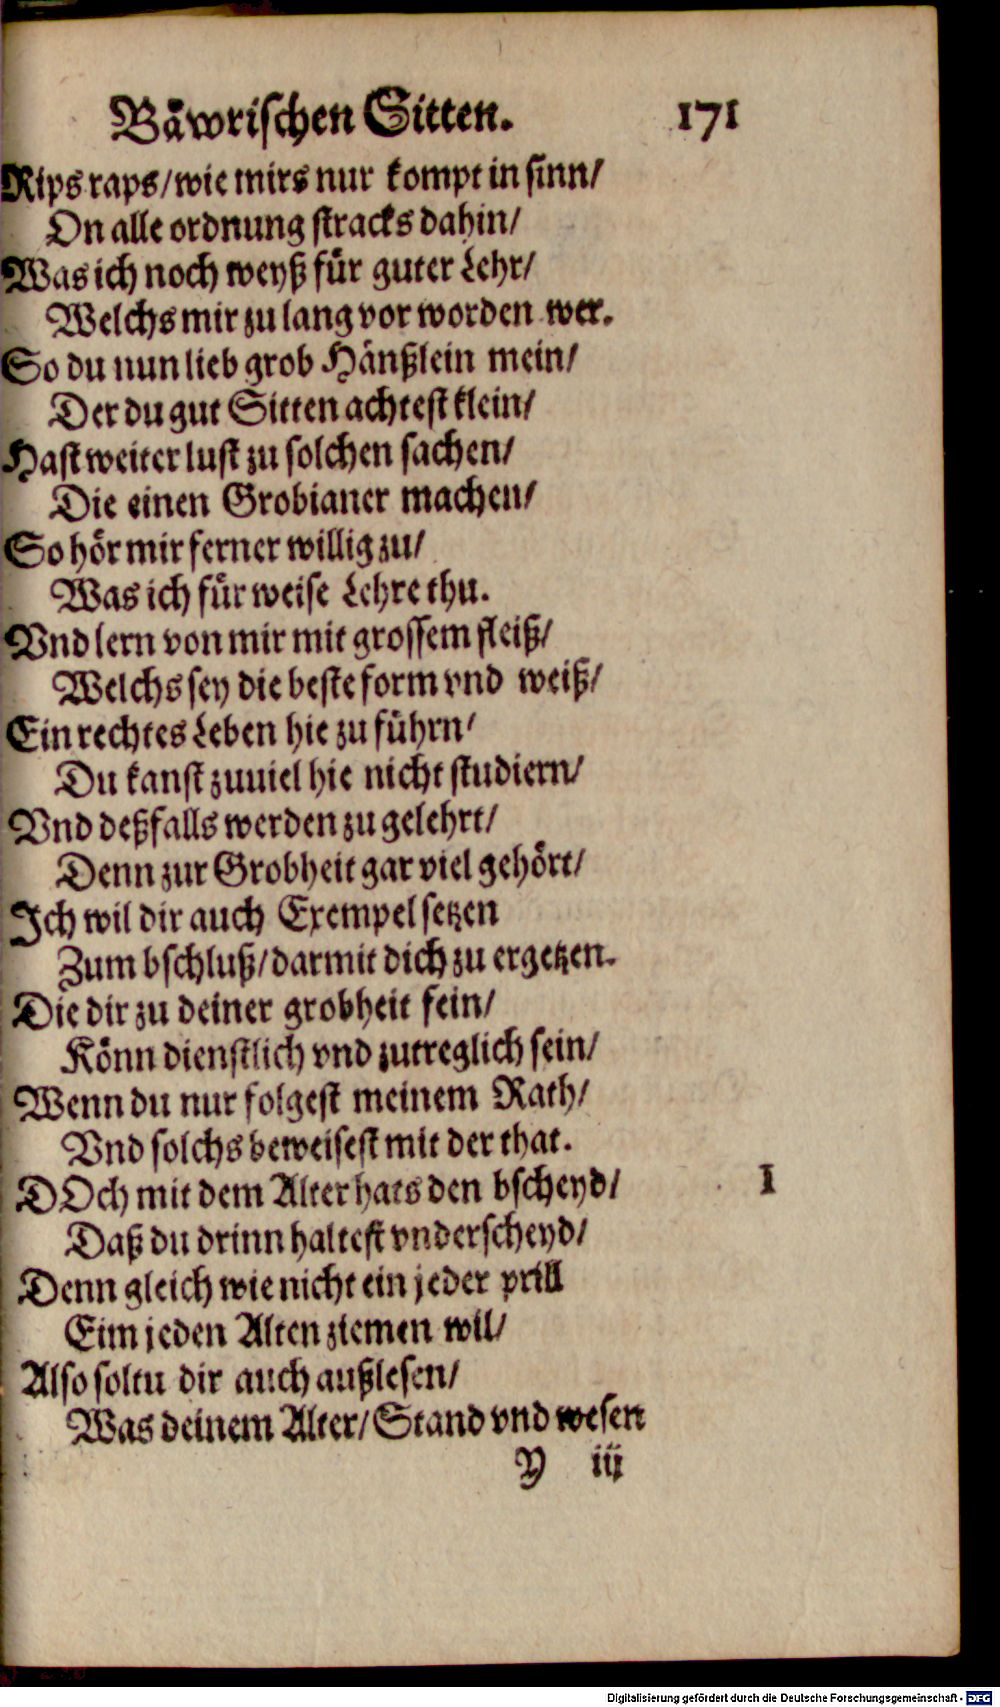 Bäwrischen Sitten. 171
Rips raps/ wie mirs nur kompt in sinn/
On alle ordnung stracks dahin/
Was ich noch weyß für guter Lehr/
Welchs mir zu lang vor worden wer.
So du nun lieb grob Hänßlein mein/
Der du gut Sitten achtest klein/
Hast weiter lust zu solchen sachen/
Die einen Grobianer machen/
So hör mir ferner willig zu/
Was ich für weise Lehre thu.
Vnd lern von mir mit grossem fleiß/
Welchs sey die beste form vnd weiß/
Ein rechtes Leben hie zu führn/
Du kanst zuuiel hie nicht studiern/
Vnd deßfalls werden zu gelehrt/
Denn zur Grobheit gar viel gehört/
Ich wil dir auch Exempel setzen
Zum bschluß/ darmit dich zu ergetzen.
Die dir zu deiner grobheit fein/
Könn dienstlich vnd zutreglich sein/
Wenn du nur folgest meinem Rath/
Vnd solchs beweisest mit der that.
DOch mit dem Alter hats den bscheyd/ 1
Daß du drinn haltest vnderscheyd/
Denn gleich wie nicht ein jeder prill
Eim jeden Alten ziemen wil/
Also soltu dir auch außlesen/
Was deinem Alter/ Stand vnd wesen
Y iij
Digitalisierung gefördert durch die Deutsche Forschungsgemeinschaft - DFG